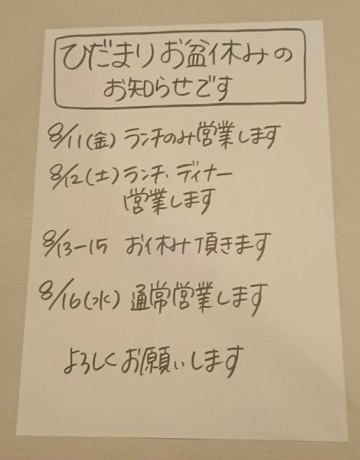 ひだまりお盆休みの
お知らせです
8/11(金) ランチのみ営業します
8/12(土) ランチ、ディナー
営業します
8/13-15 お休み頂きます
8/16(水) 通常営業します
よろしくお願いします